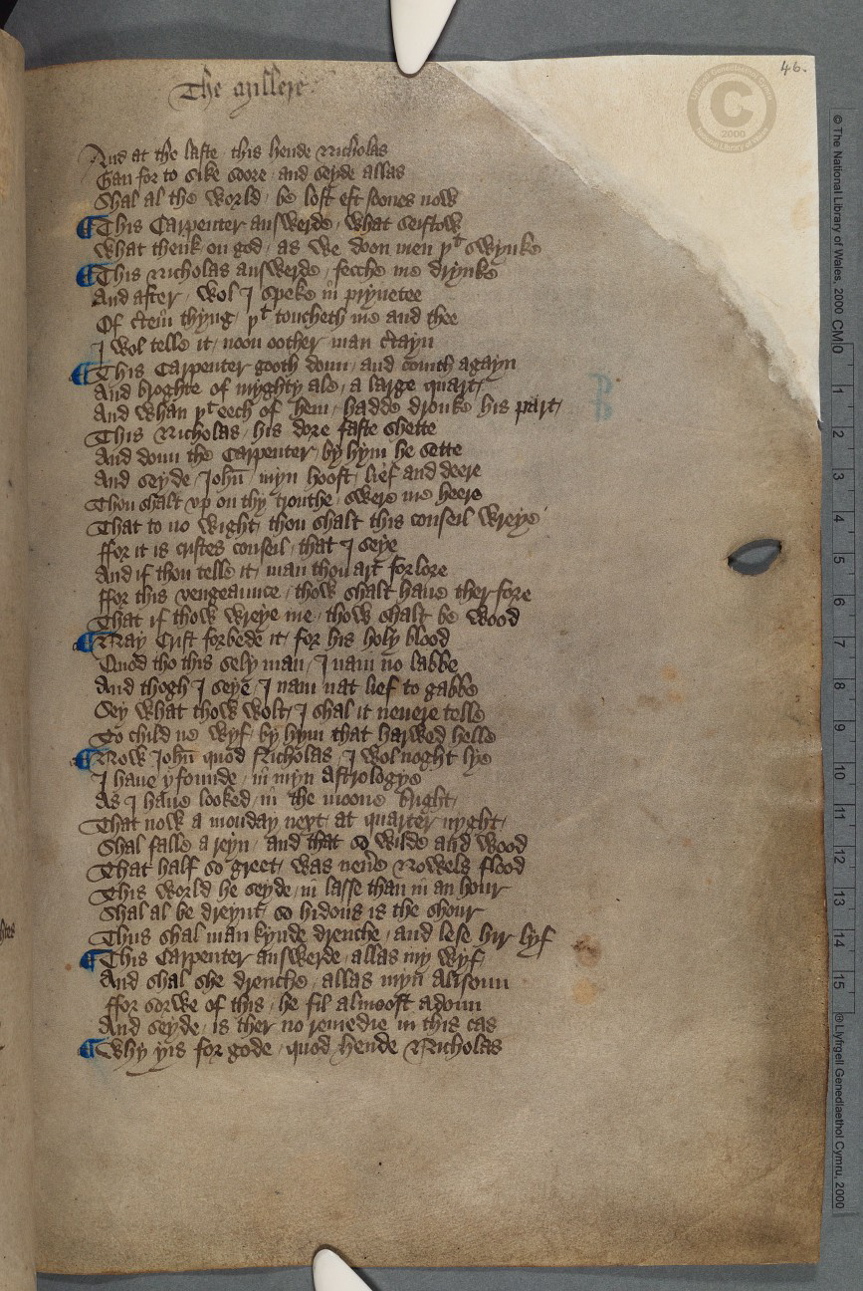 The Millere
46.
And at the laste / this hende Nicholas
Gan for to sike soore / and seyde allas
Shal al the world / be lost eft soones now
¶ This Carpenter answerde / what seistow
What thenk on god / as we doon men þt swynke
¶ This Nicholas answerde / fecche me drynke
And after / wol I speke in pryuetee
Of c̃tein thyng / þt toucheth me and thee
I wol telle it / noon oother man c̃tayn
¶ This Carpenter gooth doun / and comth agayn
And broghte of myghty ale / a large quart
And whan þt eech of hem / hadde dronke his part
This Nicholas / his dore faste shette
And doun the Carpenter / by hym he sette
And seyde / Iohn̄ / myn hoost / lief and deere
Thou shalt vp on thy trouthe / swere me heere
That to no wight / thou shalt this conseil wreye
ffor it is cristes conseil / that I seye
And if thou telle it / man thou art forlore
ffor this vengeaunce / thow shalt haue ther fore
That if thow wreye me / thow shalt be wood
¶ Nay Crist forbede it / for his holy blood
Quod tho this sely man / I nam no labbe
And thogh I seye / I nam nat lief to gabbe
Sey what thow wolt / I shal it neuere telle
To child ne wyf / by hym that harwed helle
¶ Now Iohn̄ quod Nicholas / I wol noght lye
I haue yfounde / in myn Astrologye
As I haue looked / in the moone bright
That now a monday next / at quarter nyght
Shal falle a reyn / and that so wilde and wood
That half so greet / was neũe Nowels flood
This world he seyde / in lasse than in an hour
Shal al be dreynt / so hidous is the shour
Thus shal man kynde drenche / and lese hir lyf
¶ This Carpenter answerde / allas my wyf
And shal she drenche / allas myn Alisoun
ffor sorwe of this / he fil almoost adoun
And seyde / is ther no remedie in this cas
¶ Why yis for gode / quod hende Nicholas
© The National Library of Wales, 2000
CM 0 1 2 3 4 5 6 7 8 9 10 11 12 13 14 15
® Llyfrgell Genedlaethol Cymru, 2000
C
2000